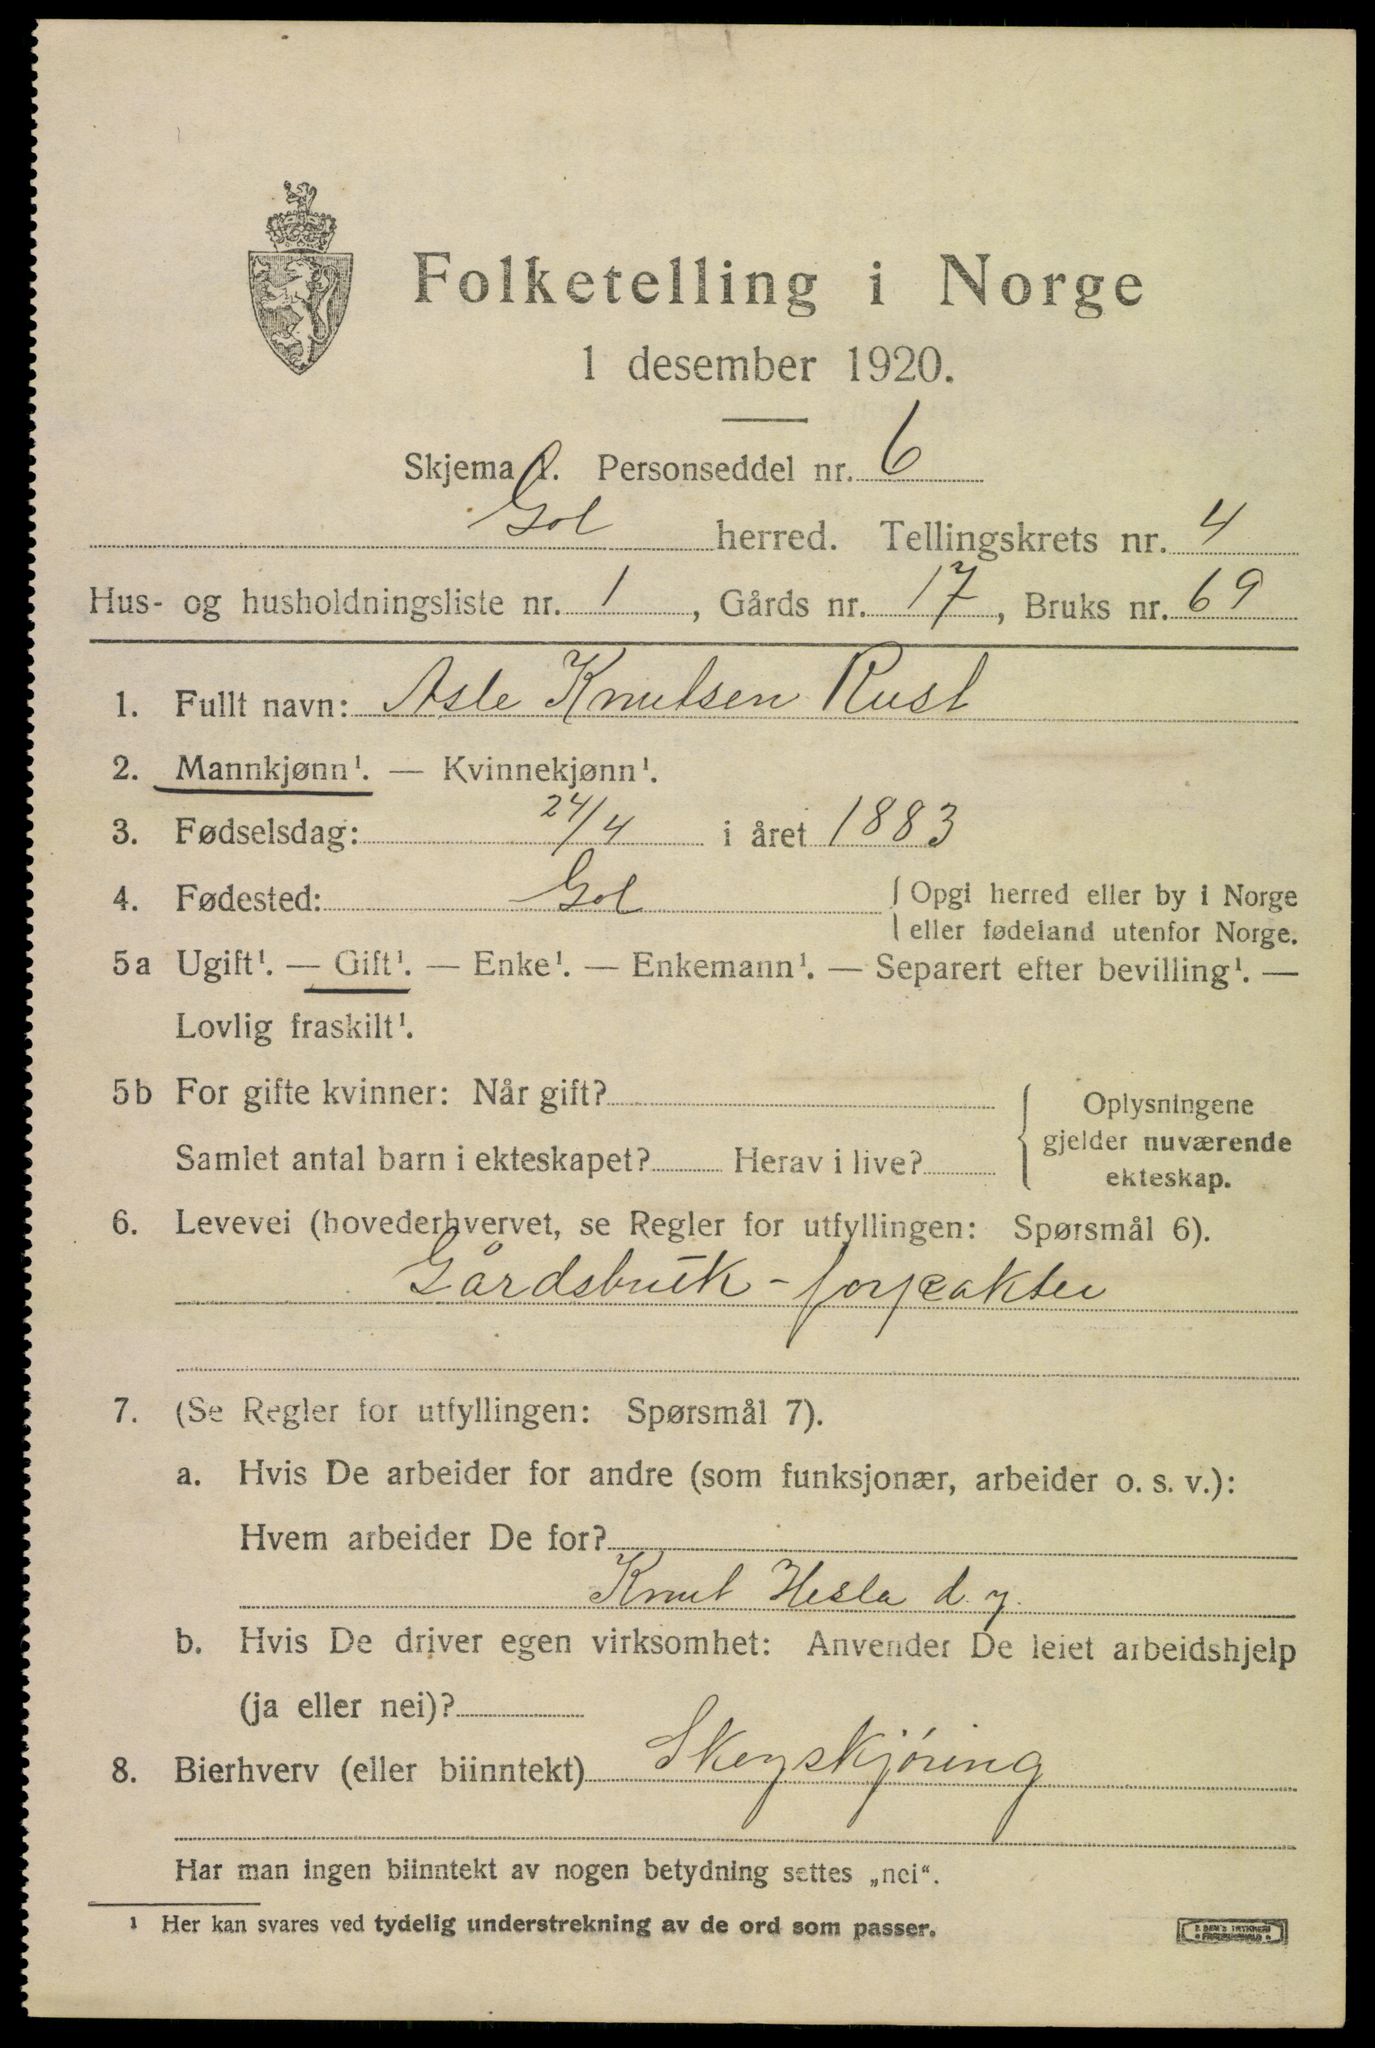 Folketelling i Norge
1 desember 1920.
Skjema 1. Personseddel nr. 6
Gol herred. Tellingskrets nr. 4
Hus- og husholdningsliste nr. 1, Gårds nr. 17, Bruks nr. 69
1. Fullt navn: Asle Knutsen Rust
2. Mannkjønn¹. — Kvinnekjønn¹.
3. Fødselsdag: 24/4 i året 1883
4. Fødested: Gol { Opgi herred eller by i Norge
eller fødeland utenfor Norge.
5a Ugift¹. — Gift¹. — Enke¹. — Enkemann¹. — Separert efter bevilling¹. —
Lovlig fraskilt¹.
5b For gifte kvinner: Når gift?
Samlet antal barn i ekteskapet? Herav i live?
{ Oplysningene
gjelder nuværende
ekteskap.
6. Levevei (hovederhvervet, se Regler for utfyllingen: Spørsmål 6).
Gårdsbruk - forpakter
7. (Se Regler for utfyllingen: Spørsmål 7).
a. Hvis De arbeider for andre (som funksjonær, arbeider o. s. v.):
Hvem arbeider De for?
Knut Hesla d. y.
b. Hvis De driver egen virksomhet: Anvender De leiet arbeidshjelp
(ja eller nei)?
8. Bierhverv (eller biinntekt) Skysskjøring
Har man ingen biinntekt av nogen betydning settes „nei“.
¹ Her kan svares ved tydelig understrekning av de ord som passer.